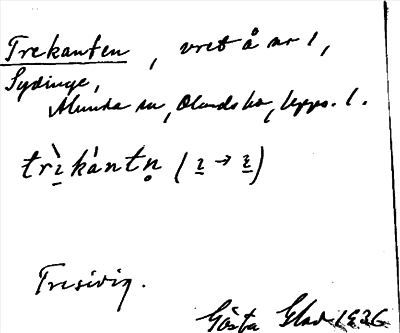 Trekanten, vret å nr 1,
Sydinge,
Almunda sn, Olands hd, Upps. l.
trı̲̀kántn̥ (ı̲ → ᶓ̲)
Tresidig.
Gösta Glad 1936